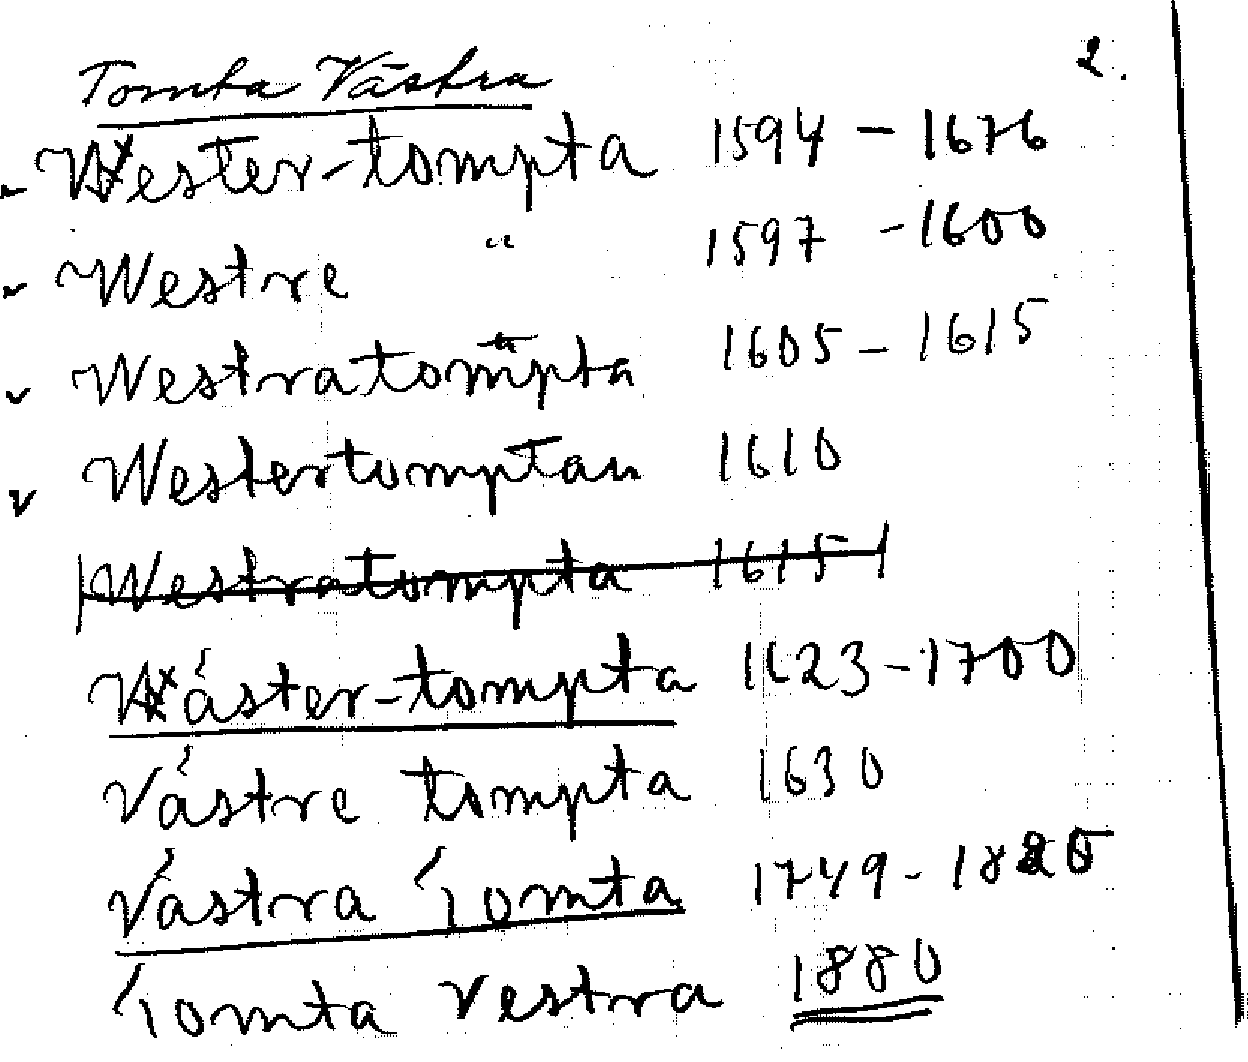 2.
Tomta Västra
Wester-tompta 1594 - 1676
Westre " 1597 - 1600
Westratompta 1605 - 1615
Westertomptan 1610
Westratompta 1615
Wäster-tompta 1623 - 1700
Västre tompta 1630
Västra Tomta 1749 - 1820
Tomta Vestra 1880